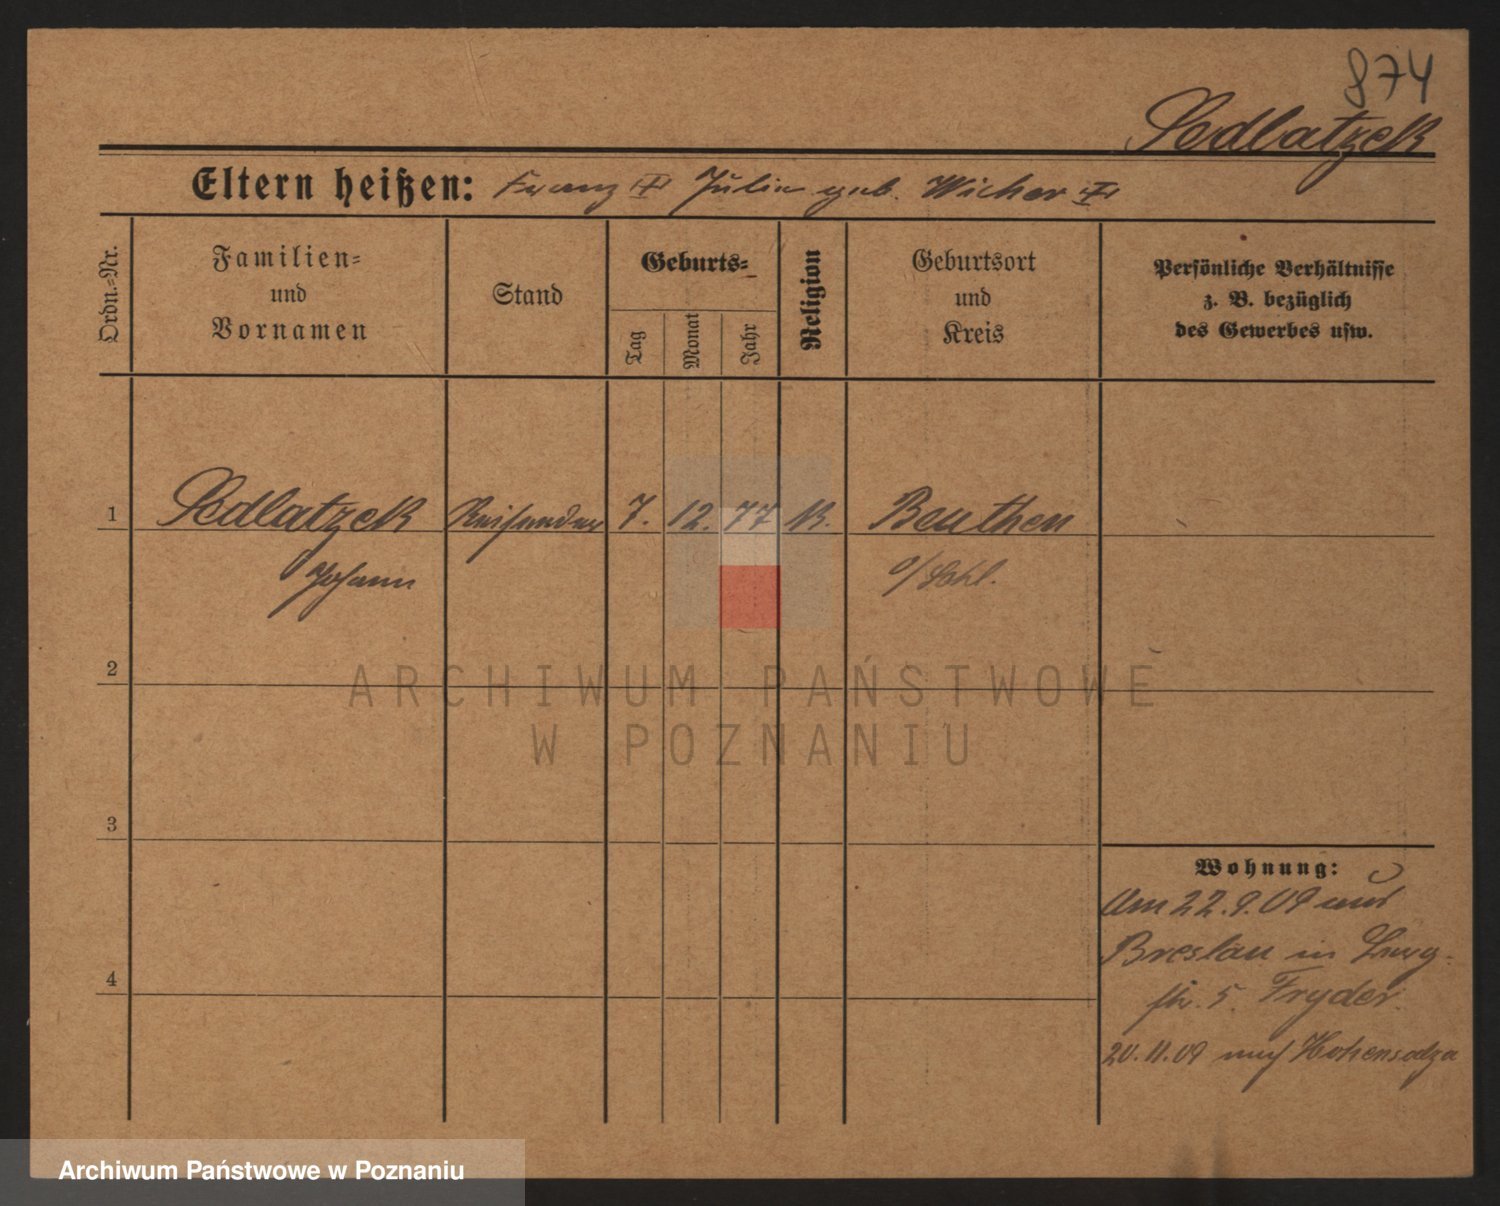 874
Sedlatzek
Eltern heißen: Franz Julie geb. Wicher
Ordn.=Nr.
Familien=
und
Vornamen
Stand
Geburts=
Tag
Monat
Jahr
Religion
Geburtsort
und
Kreis
Persönliche Verhältnisse
z. B. bezüglich
des Gewerbes usw.
1 Sedlatzek Reisender 7. 12. 77 K. Beuthen
Johann o/Schl.
2
3
4
Wohnung:
Am 22.9.09 aus
Breslau in
str. 5. Fryder.
20.11.09 nach Hohensalza
ARCHIWUM PAŃSTWOWE
W POZNANIU
Archiwum Państwowe w Poznaniu